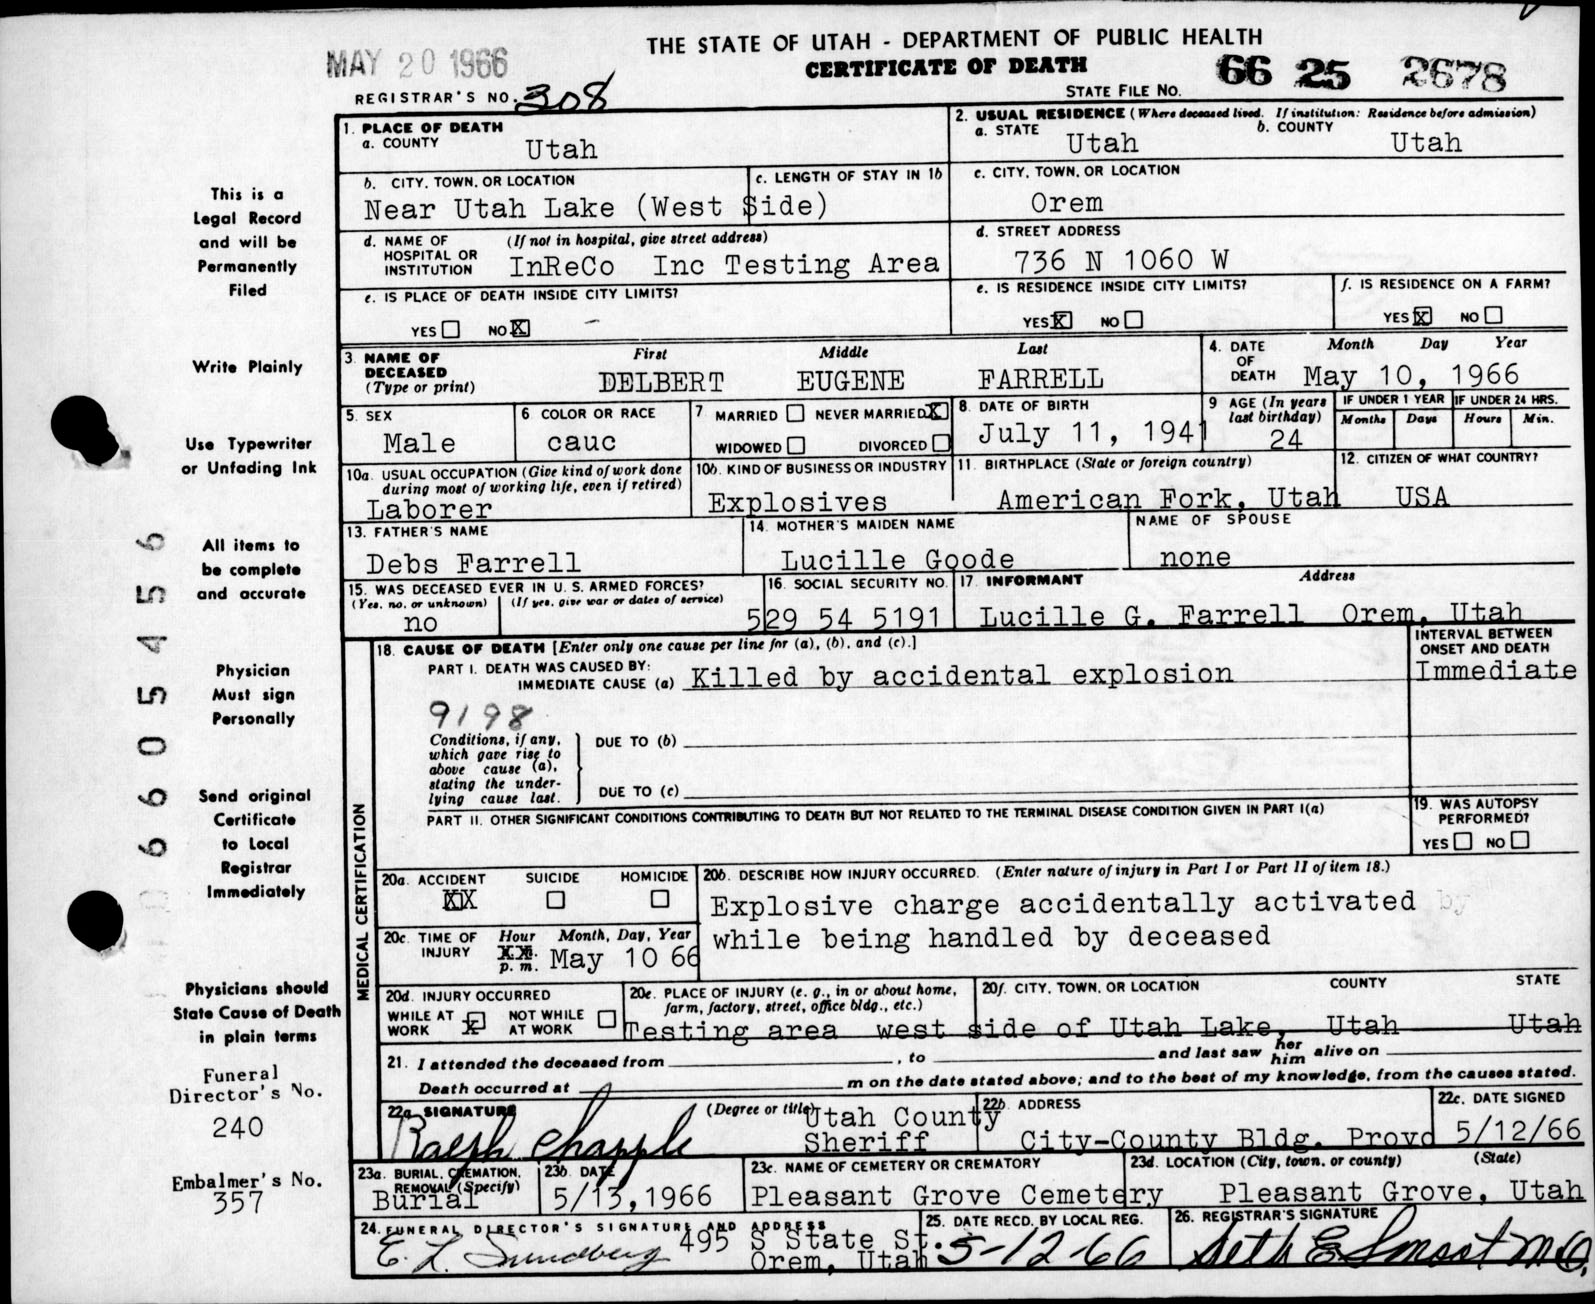 THE STATE OF UTAH - DEPARTMENT OF PUBLIC HEALTH
CERTIFICATE OF DEATH
MAY 20 1966
REGISTRAR'S NO. 308
STATE FILE NO. 66 25 2678
This is a
Legal Record
and will be
Permanently
Filed
Write Plainly
Use Typewriter
or Unfading Ink
All items to
be complete
and accurate
Physician
Must sign
Personally
Send original
Certificate
to Local
Registrar
Immediately
Physicians should
State Cause of Death
in plain terms
Funeral
Director's No.
240
Embalmer's No.
357
6605456
1. PLACE OF DEATH
a. COUNTY Utah
2. USUAL RESIDENCE (Where deceased lived. If institution: Residence before admission)
a. STATE Utah b. COUNTY Utah
b. CITY, TOWN, OR LOCATION c. LENGTH OF STAY IN 1b
Near Utah Lake (West Side)
c. CITY, TOWN, OR LOCATION
Orem
d. NAME OF HOSPITAL OR INSTITUTION (If not in hospital, give street address)
InReCo Inc Testing Area
d. STREET ADDRESS
736 N 1060 W
e. IS PLACE OF DEATH INSIDE CITY LIMITS?
YES NO X
e. IS RESIDENCE INSIDE CITY LIMITS?
YES X NO
f. IS RESIDENCE ON A FARM?
YES X NO
3. NAME OF DECEASED (Type or print) First Middle Last
DELBERT EUGENE FARRELL
4. DATE OF DEATH Month Day Year
May 10, 1966
5. SEX
Male
6 COLOR OR RACE
cauc
7 MARRIED NEVER MARRIED X
WIDOWED DIVORCED
8. DATE OF BIRTH
July 11, 1941
9 AGE (In years last birthday)
24
IF UNDER 1 YEAR IF UNDER 24 HRS.
Months Days Hours Min.
10a. USUAL OCCUPATION (Give kind of work done during most of working life, even if retired)
Laborer
10b. KIND OF BUSINESS OR INDUSTRY
Explosives
11. BIRTHPLACE (State or foreign country)
American Fork, Utah
12. CITIZEN OF WHAT COUNTRY?
USA
13. FATHER'S NAME
Debs Farrell
14. MOTHER'S MAIDEN NAME
Lucille Goode
NAME OF SPOUSE
none
15. WAS DECEASED EVER IN U. S. ARMED FORCES?
(Yes, no, or unknown) (If yes, give war or dates of service)
no
16. SOCIAL SECURITY NO.
529 54 5191
17. INFORMANT Address
Lucille G. Farrell Orem, Utah
18. CAUSE OF DEATH [Enter only one cause per line for (a), (b), and (c).]
PART I. DEATH WAS CAUSED BY:
IMMEDIATE CAUSE (a) Killed by accidental explosion
INTERVAL BETWEEN ONSET AND DEATH
Immediate
9198
Conditions, if any, which gave rise to above cause (a), stating the underlying cause last.
DUE TO (b)
DUE TO (c)
PART II. OTHER SIGNIFICANT CONDITIONS CONTRIBUTING TO DEATH BUT NOT RELATED TO THE TERMINAL DISEASE CONDITION GIVEN IN PART I(a)
19. WAS AUTOPSY PERFORMED?
YES NO
MEDICAL CERTIFICATION
20a. ACCIDENT SUICIDE HOMICIDE
XX
20b. DESCRIBE HOW INJURY OCCURRED. (Enter nature of injury in Part I or Part II of item 18.)
Explosive charge accidentally activated by
while being handled by deceased
20c. TIME OF INJURY Hour Month, Day, Year
p. m. May 10 66
20d. INJURY OCCURRED
WHILE AT WORK X NOT WHILE AT WORK
20e. PLACE OF INJURY (e. g., in or about home, farm, factory, street, office bldg., etc.)
20f. CITY, TOWN, OR LOCATION COUNTY STATE
Testing area west side of Utah Lake, Utah Utah
21. I attended the deceased from , to and last saw her him alive on
Death occurred at m on the date stated above; and to the best of my knowledge, from the causes stated.
22a. SIGNATURE (Degree or title)
Ralph Chapple Utah County Sheriff
22b. ADDRESS
City-County Bldg. Provo
22c. DATE SIGNED
5/12/66
23a. BURIAL, CREMATION, REMOVAL (Specify)
Burial
23b. DATE
5/13,1966
23c. NAME OF CEMETERY OR CREMATORY
Pleasant Grove Cemetery
23d. LOCATION (City, town, or county) (State)
Pleasant Grove, Utah
24. FUNERAL DIRECTOR'S SIGNATURE AND ADDRESS
E. L. Sundberg 495 S State St.
Orem, Utah
25. DATE RECD. BY LOCAL REG.
5-12-66
26. REGISTRAR'S SIGNATURE
Seth E Smoot M.D.